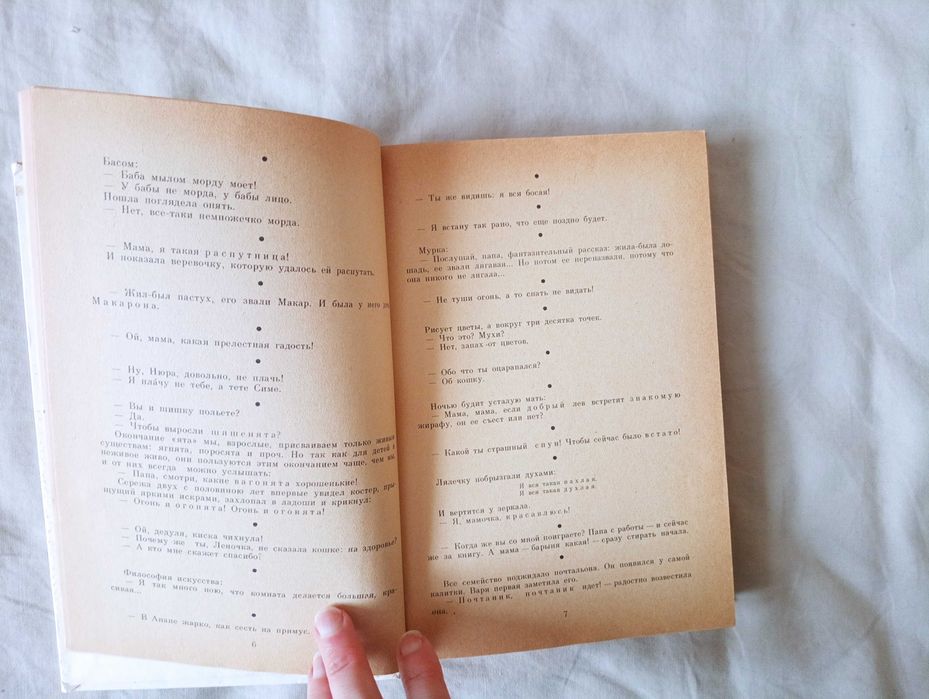 •
Басом:
— Баба мылом морду моет!
— У бабы не морда, у бабы лицо.
Пошла поглядела опять.
— Нет, все-таки немножечко морда.
•
— Мама, я такая распутница!
И показала веревочку, которую удалось ей распутать.
•
— Жил-был пастух, его звали Макар. И была у него
Макарона.
•
— Ой, мама, какая прелестная гадость!
•
— Ну, Нюра, довольно, не плачь!
— Я плáчу не тебе, а тете Симе.
•
— Вы и шишку польете?
— Да.
— Чтобы выросли шишенята?
Окончание «ята» мы, взрослые, присваиваем только живым
существам: ягнята, поросята и проч. Но так как для детей и
неживое живо, они пользуются этим окончанием чаще, чем мы,
и от них всегда можно услышать:
— Папа, смотри, какие вагонята хорошенькие!
Сережа двух с половиною лет впервые увидел костер, пры-
щущий яркими искрами, захлопал в ладоши и крикнул:
— Огонь и огонята! Огонь и огонята!
•
— Ой, дедуля, киска чихнула!
— Почему же ты, Леночка, не сказала кошке: на здоровье?
— А кто мне скажет спасибо?
•
Философия искусства:
— Я так много пою, что комната делается большая, кра-
сивая...
•
— В Анапе жарко, как сесть на примус.
6
•
— Ты же видишь: я вся босая!
•
— Я встану так рано, что еще поздно будет.
•
Мурка:
— Послушай, папа, фантазительный рассказ: жила-была ло-
шадь, ее звали лягавая... Но потом ее переназвали, потому что
она никого не лягала...
•
— Не туши огонь, а то спать не видать!
•
Рисует цветы, а вокруг три десятка точек.
— Что это? Мухи?
— Нет, запах от цветов.
•
— Обо что ты оцарапался?
— Об кошку.
•
Ночью будит усталую мать:
— Мама, мама, если добрый лев встретит знакомую
жирафу, он ее съест или нет?
•
— Какой ты страшный спун! Чтобы сейчас было встато!
•
Лялечку побрызгали духами:
Я вся такая пахлая,
Я вся такая духлая.
И вертится у зеркала.
— Я, мамочка, красавлюсь!
•
— Когда же вы со мной поиграете? Папа с работы — и сейчас
же за книгу. А мама — барыня какая! — сразу стирать начала.
•
Все семейство поджидало почтальона. Он появился у самой
калитки. Варя первая заметила его.
— Почтаник, почтаник идет! — радостно возвестила
она.
7